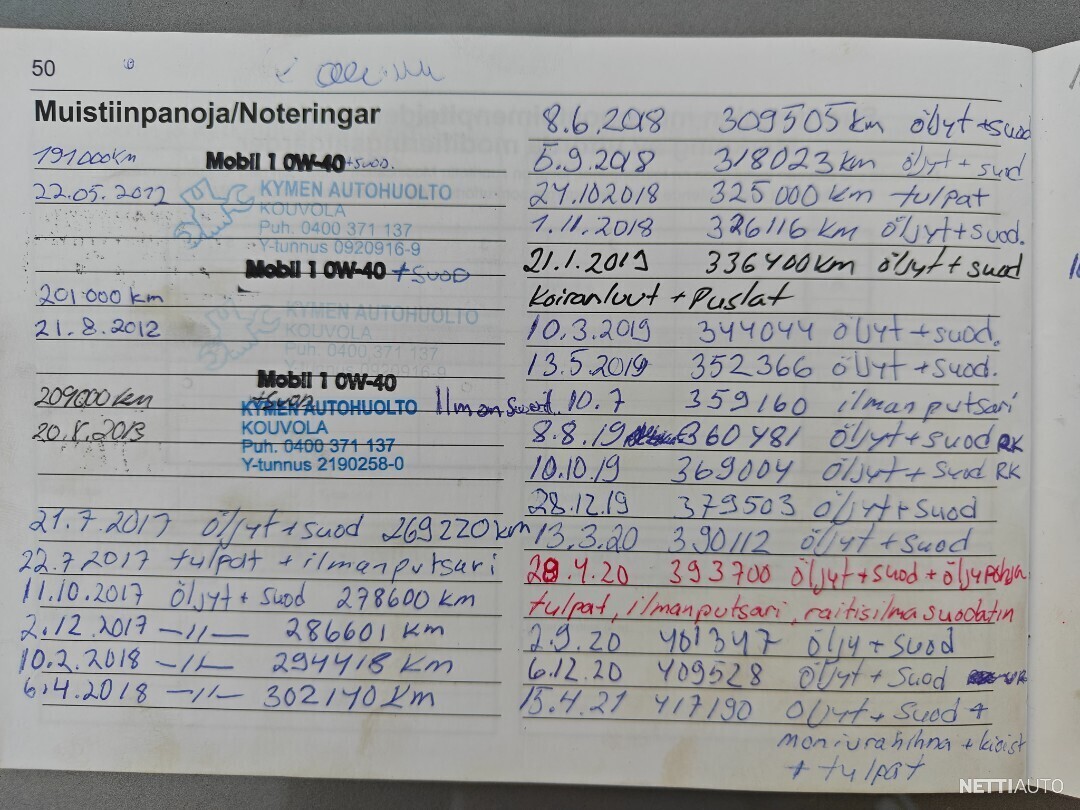 50
Muistiinpanoja/Noteringar
191000km
Mobil 1 0W-40 +suod.
22.05.2012
KYMEN AUTOHUOLTO
KOUVOLA
Puh. 0400 371 137
Y-tunnus 0920916-9
Mobil 1 0W-40 +suod
201000 km
KYMEN AUTOHUOLTO
KOUVOLA
21.8.2012
Puh. 0400 371 137
Mobil 1 0W-40
209000 km
KYMEN AUTOHUOLTO
KOUVOLA
20.8.2013
Puh. 0400 371 137
Y-tunnus 2190258-0
21.7.2017 öljyt + suod 269220 km
22.7.2017 tulpat + ilmanputsari
11.10.2017 öljyt + suod 278600 km
2.12.2017 —11— 286601 km
10.2.2018 —11— 294418 km
6.4.2018 —11— 302140 km
8.6.2018 309505 km öljyt + suod
5.9.2018 318023 km öljyt + suod
24.10 2018 325000 km tulpat
1.11.2018 326116 km öljyt + suod.
21.1.2019 336400 km öljyt + suod
Koiranluut + Puslat
10.3.2019 344044 öljyt + suod.
13.5.2019 352366 öljyt + suod.
Ilman suod. 10.7 359160 ilmanputsari
8.8.19 360481 öljyt + suod RK
10.10.19 369004 öljyt + suod RK
28.12.19 379503 öljyt + suod
13.3.20 390112 öljyt + suod
28.4.20 393700 öljyt + suod + öljypohja
tulpat, ilmanputsari, raitisilmasuodatin
2.9.20 401347 öljy + suod
6.12.20 409528 öljyt + suod
15.4.21 417190 öljyt + suod +
moniurahihna +
+ tulpat
NETTIAUTO